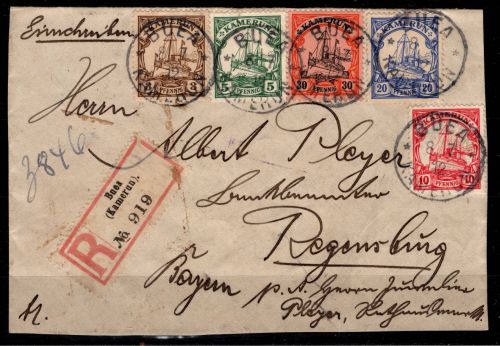 Einschreiben
KAMERUN
3 PFENNIG 3
KAMERUN
5 PFENNIG 5
KAMERUN
30 PFENNIG 30
KAMERUN
20 PFENNIG 20
KAMERUN
10 PFENNIG 10
BUEA
KAMERUN
BUEA
KAMERUN
BUEA
KAMERUN
BUEA
KAMERUN
BUEA
KAMERUN
Herrn
3846
Albert Pleyer
Regensburg
Bayern p. A. Herrn
Pleyer,
R
Buea
(Kamerun).
№ 919